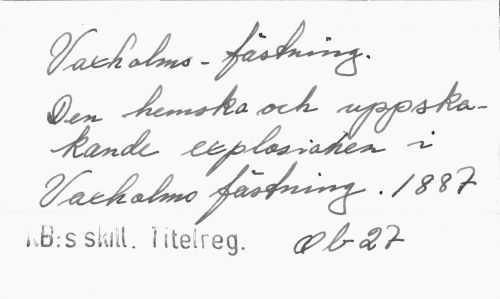 Vaxholms - fästning.
Den hemska och uppska-
kande explosionen i
Vaxholms fästning. 1887
KB:s skill. Titelreg. Ob 27